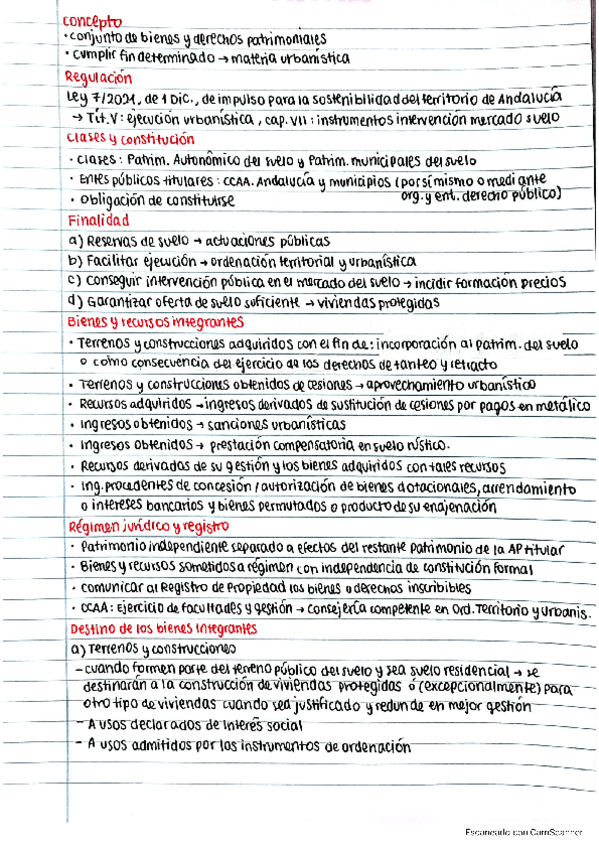 concepto
· conjunto de bienes y derechos patrimoniales
· cumplir fin determinado → materia urbanística
Regulación
Ley 7/2021, de 1 Dic., de impulso para la sostenibilidad del territorio de Andalucía
→ Tít. V: ejecución urbanística, cap. VII: instrumentos intervención mercado suelo
Clases y constitución
· Clases: Patrim. Autonómico del suelo y Patrim. municipales del suelo
· Entes públicos titulares: CCAA. Andalucía y municipios (por sí mismo o mediante
org. y ent. derecho público)
· Obligación de constituirse
Finalidad
a) Reservas de suelo → actuaciones públicas
b) Facilitar ejecución → ordenación territorial y urbanística
c) Conseguir intervención pública en el mercado del suelo → incidir formación precios
d) Garantizar oferta de suelo suficiente → viviendas protegidas
Bienes y recursos integrantes
· Terrenos y construcciones adquiridos con el fin de: incorporación al patrim. del suelo
o como consecuencia del ejercicio de los derechos de tanteo y retracto
· Terrenos y construcciones obtenidos de cesiones → aprovechamiento urbanístico
· Recursos adquiridos → ingresos derivados de sustitución de cesiones por pagos en metálico
· Ingresos obtenidos → sanciones urbanísticas
· Ingresos obtenidos → prestación compensatoria en suelo rústico.
· Recursos derivados de su gestión y los bienes adquiridos con tales recursos
· Ing. procedentes de concesión / autorización de bienes dotacionales, arrendamiento
o intereses bancarios y bienes permutados o producto de su enajenación
Régimen jurídico y registro
· Patrimonio independiente separado a efectos del restante patrimonio de la AP titular
· Bienes y recursos sometidos a régimen con independencia de constitución formal
· comunicar al Registro de Propiedad los bienes o derechos inscribibles
· CCAA: ejercicio de facultades y gestión → consejería competente en Ord. Territorio y Urbanis.
Destino de los bienes integrantes
a) Terrenos y construcciones
- cuando formen parte del terreno público del suelo y sea suelo residencial → se
destinarán a la construcción de viviendas protegidas ó (excepcionalmente) para
otro tipo de viviendas cuando sea justificado y redunde en mejor gestión
- A usos declarados de interés social
- A usos admitidos por los instrumentos de ordenación
Escaneado con CamScanner